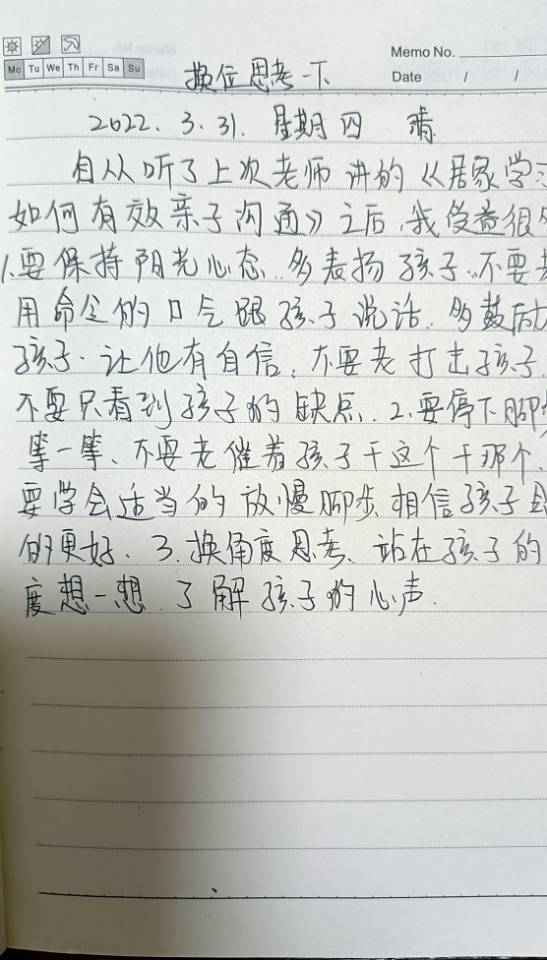 Memo No.
Mo Tu We Th Fr Sa Su
Date / /
换位思考一下
2022. 3. 31. 星期四 晴
自从听了上次老师讲的《居家学
如何有效亲子沟通》之后,我受益很
1.要保持阳光心态.多表扬孩子.不要
用命令的口气跟孩子说话.多鼓励
孩子.让他有自信,不要老打击孩子.
不要只看到孩子的缺点.2.要停下脚
等一等、不要老催着孩子干这个干那个.
要学会适当的放慢脚步.相信孩子
的更好.3.换角度思考、站在孩子的
度想一想.了解孩子的心声.